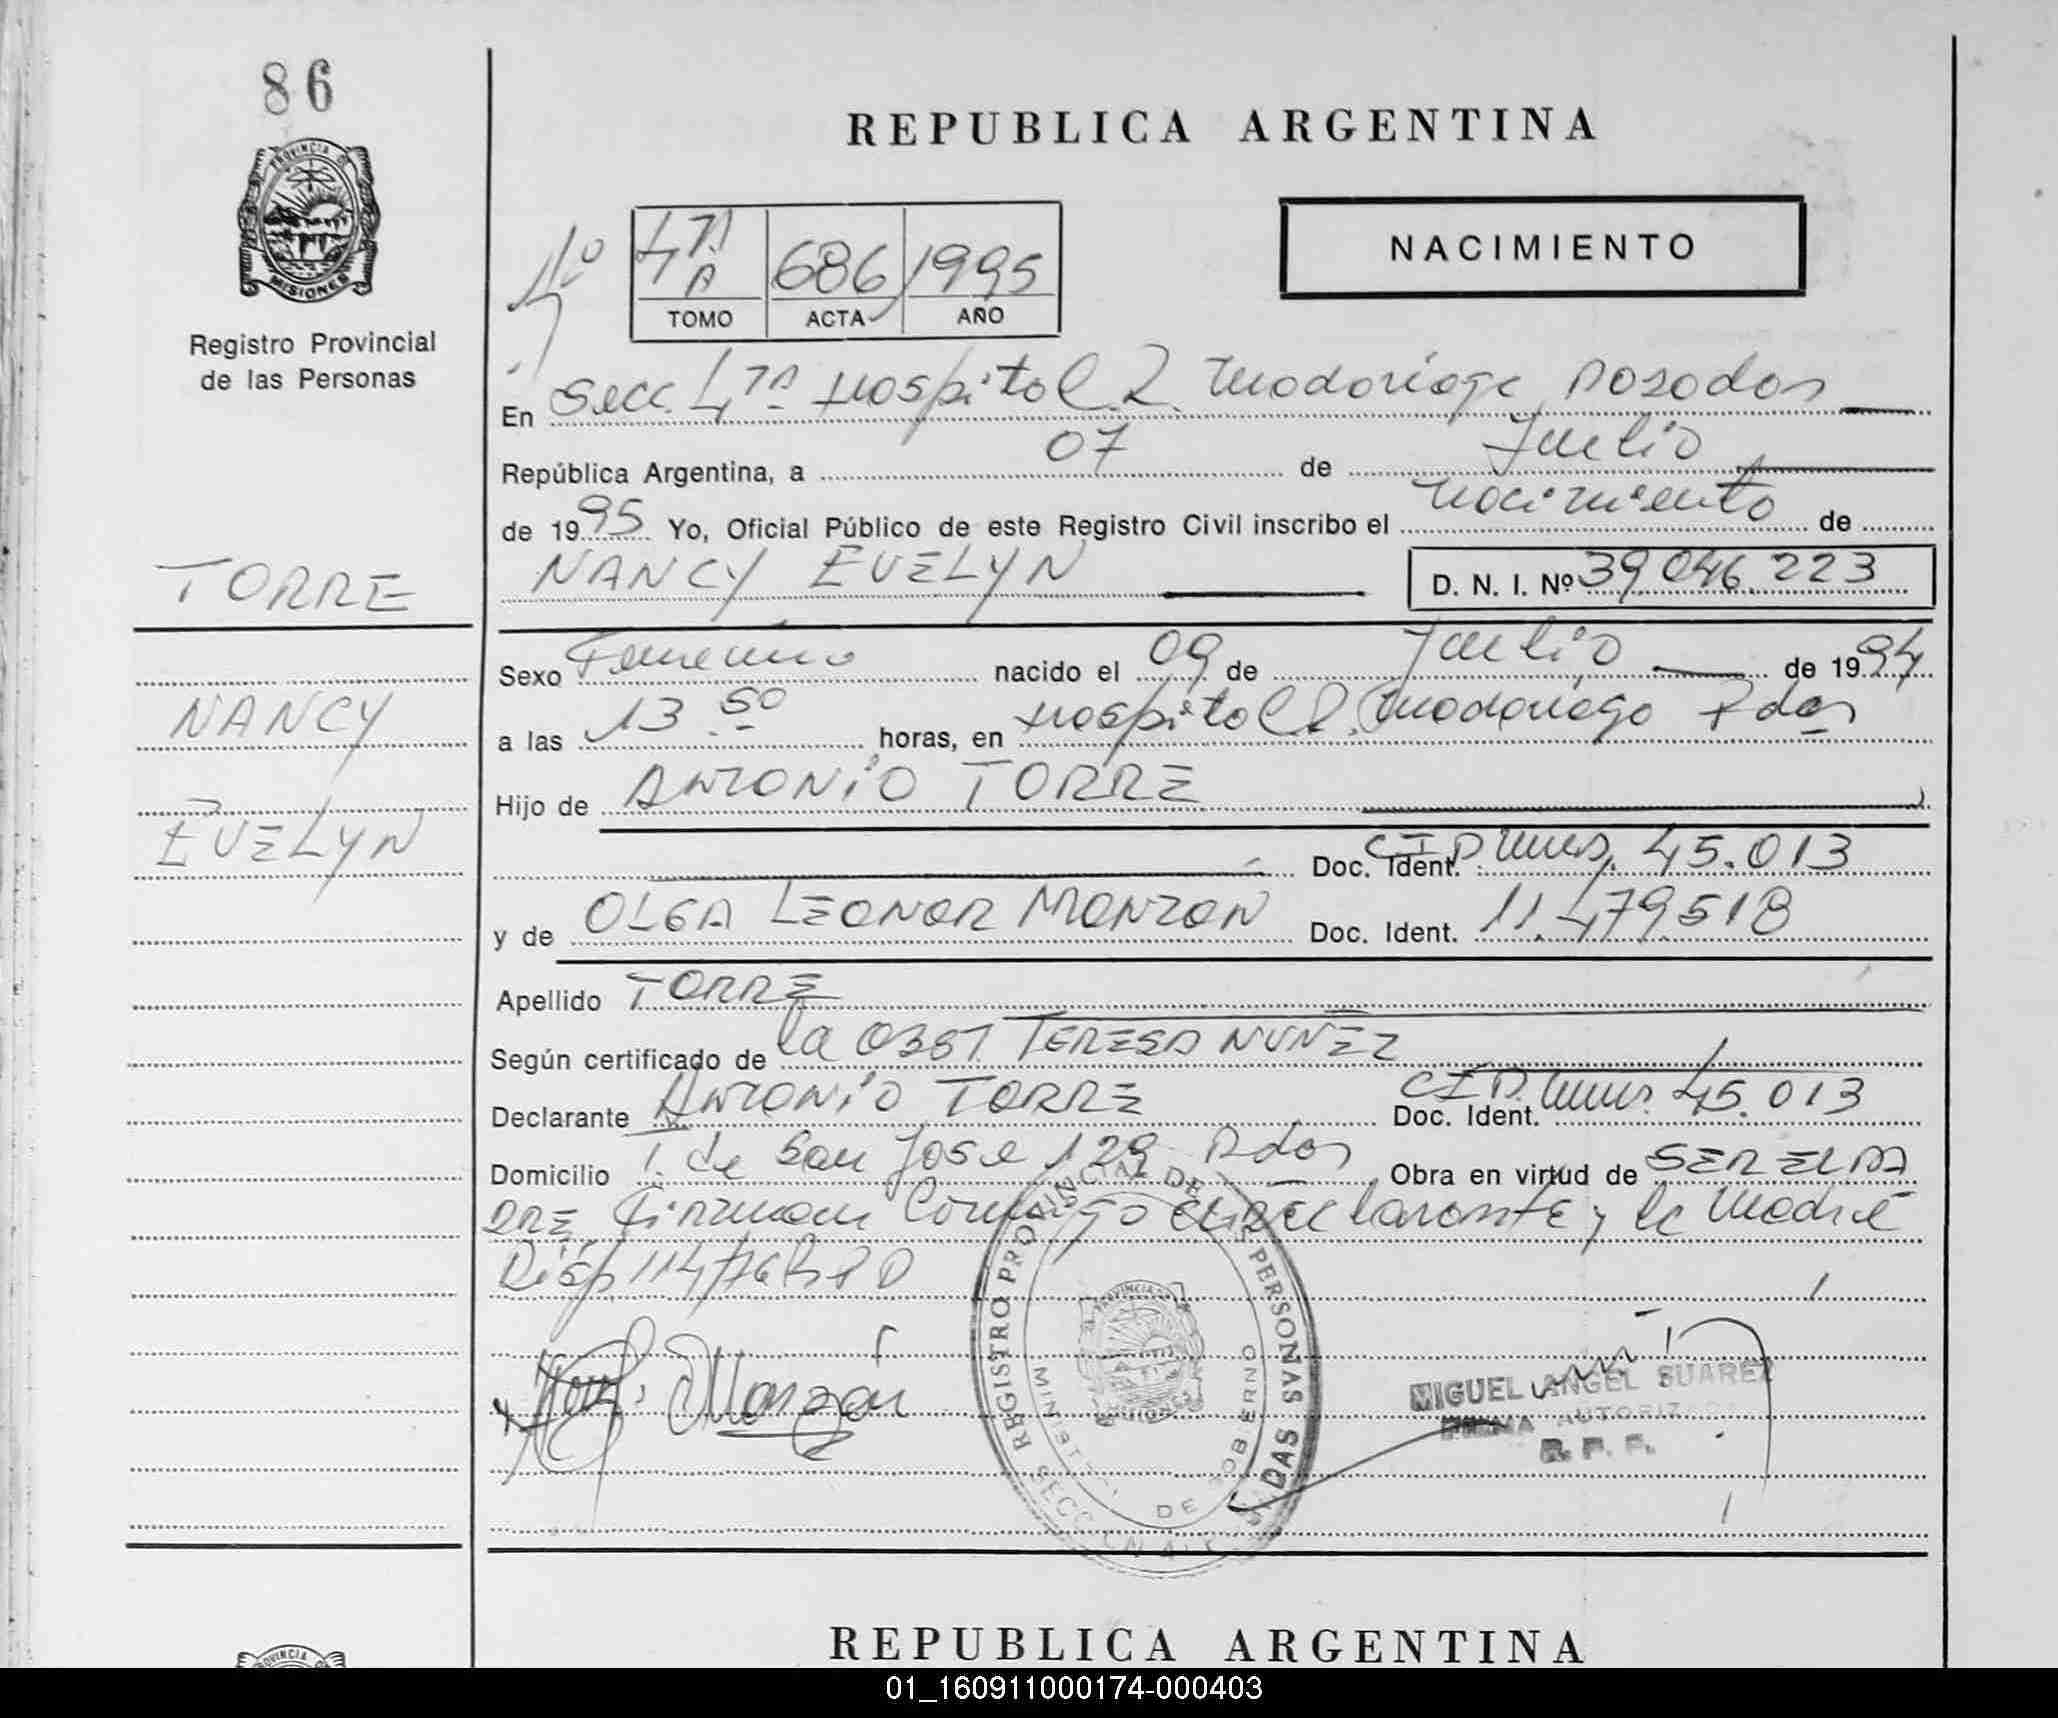 86
PROVINCIA DE
MISIONES
Registro Provincial
de las Personas
TORRE
NANCY
EVELYN
REPUBLICA ARGENTINA
4º
4TA A 686 1995
TOMO ACTA AÑO
NACIMIENTO
En Secc. 4TA Hospital R. Madariaga Posadas
República Argentina, a 07 de Julio
de 1995 Yo, Oficial Público de este Registro Civil inscribo el nacimiento de
NANCY EVELYN D. N. I. Nº 39.046.223
Sexo Femenino nacido el 09 de Julio de 1994
a las 13 50 horas, en Hospital R. Madariaga Pdas
Hijo de ANTONIO TORRE
Doc. Ident. CIP Mnes. 45.013
y de OLGA LEONOR MONZON Doc. Ident. 11.479.518
Apellido TORRE
Según certificado de la OBST TERESA NUÑEZ
Declarante ANTONIO TORRE Doc. Ident. CIP. Mnes. 45.013
Domicilio T. de San Jose 129 Pdas Obra en virtud de SER EL PA
DRE Firman Conmigo el declarante y la Madre
Disp 114/76 R P P
Monzon
REGISTRO PROVINCIAL DE LAS PERSONAS
MINISTERIO DE GOBIERNO
POSADAS
MIGUEL ANGEL SUAREZ
FIRMA AUTORIZADA
R. P. P.
REPUBLICA ARGENTINA
PROVINCIA
01_160911000174-000403